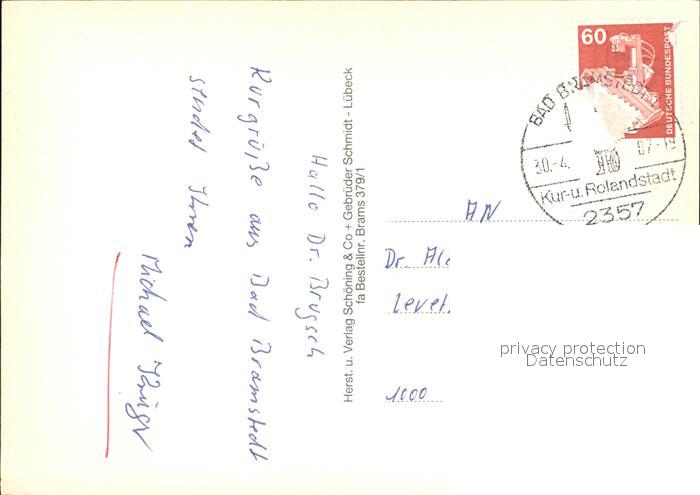 Hallo Dr. Brugsch
Kurgrüße aus Bad Bramstedt
sendet Ihnen
Michael
Herst. u. Verlag Schöning & Co + Gebrüder Schmidt - Lübeck
fa Bestellnr. Brams 379/1
60
DEUTSCHE BUNDESPOST
BAD BRAMSTEDT
30.-4. 87-19
Kur-u. Rolandstadt
2357
AN
Dr. Ale
Levet.
1000
privacy protection
Datenschutz